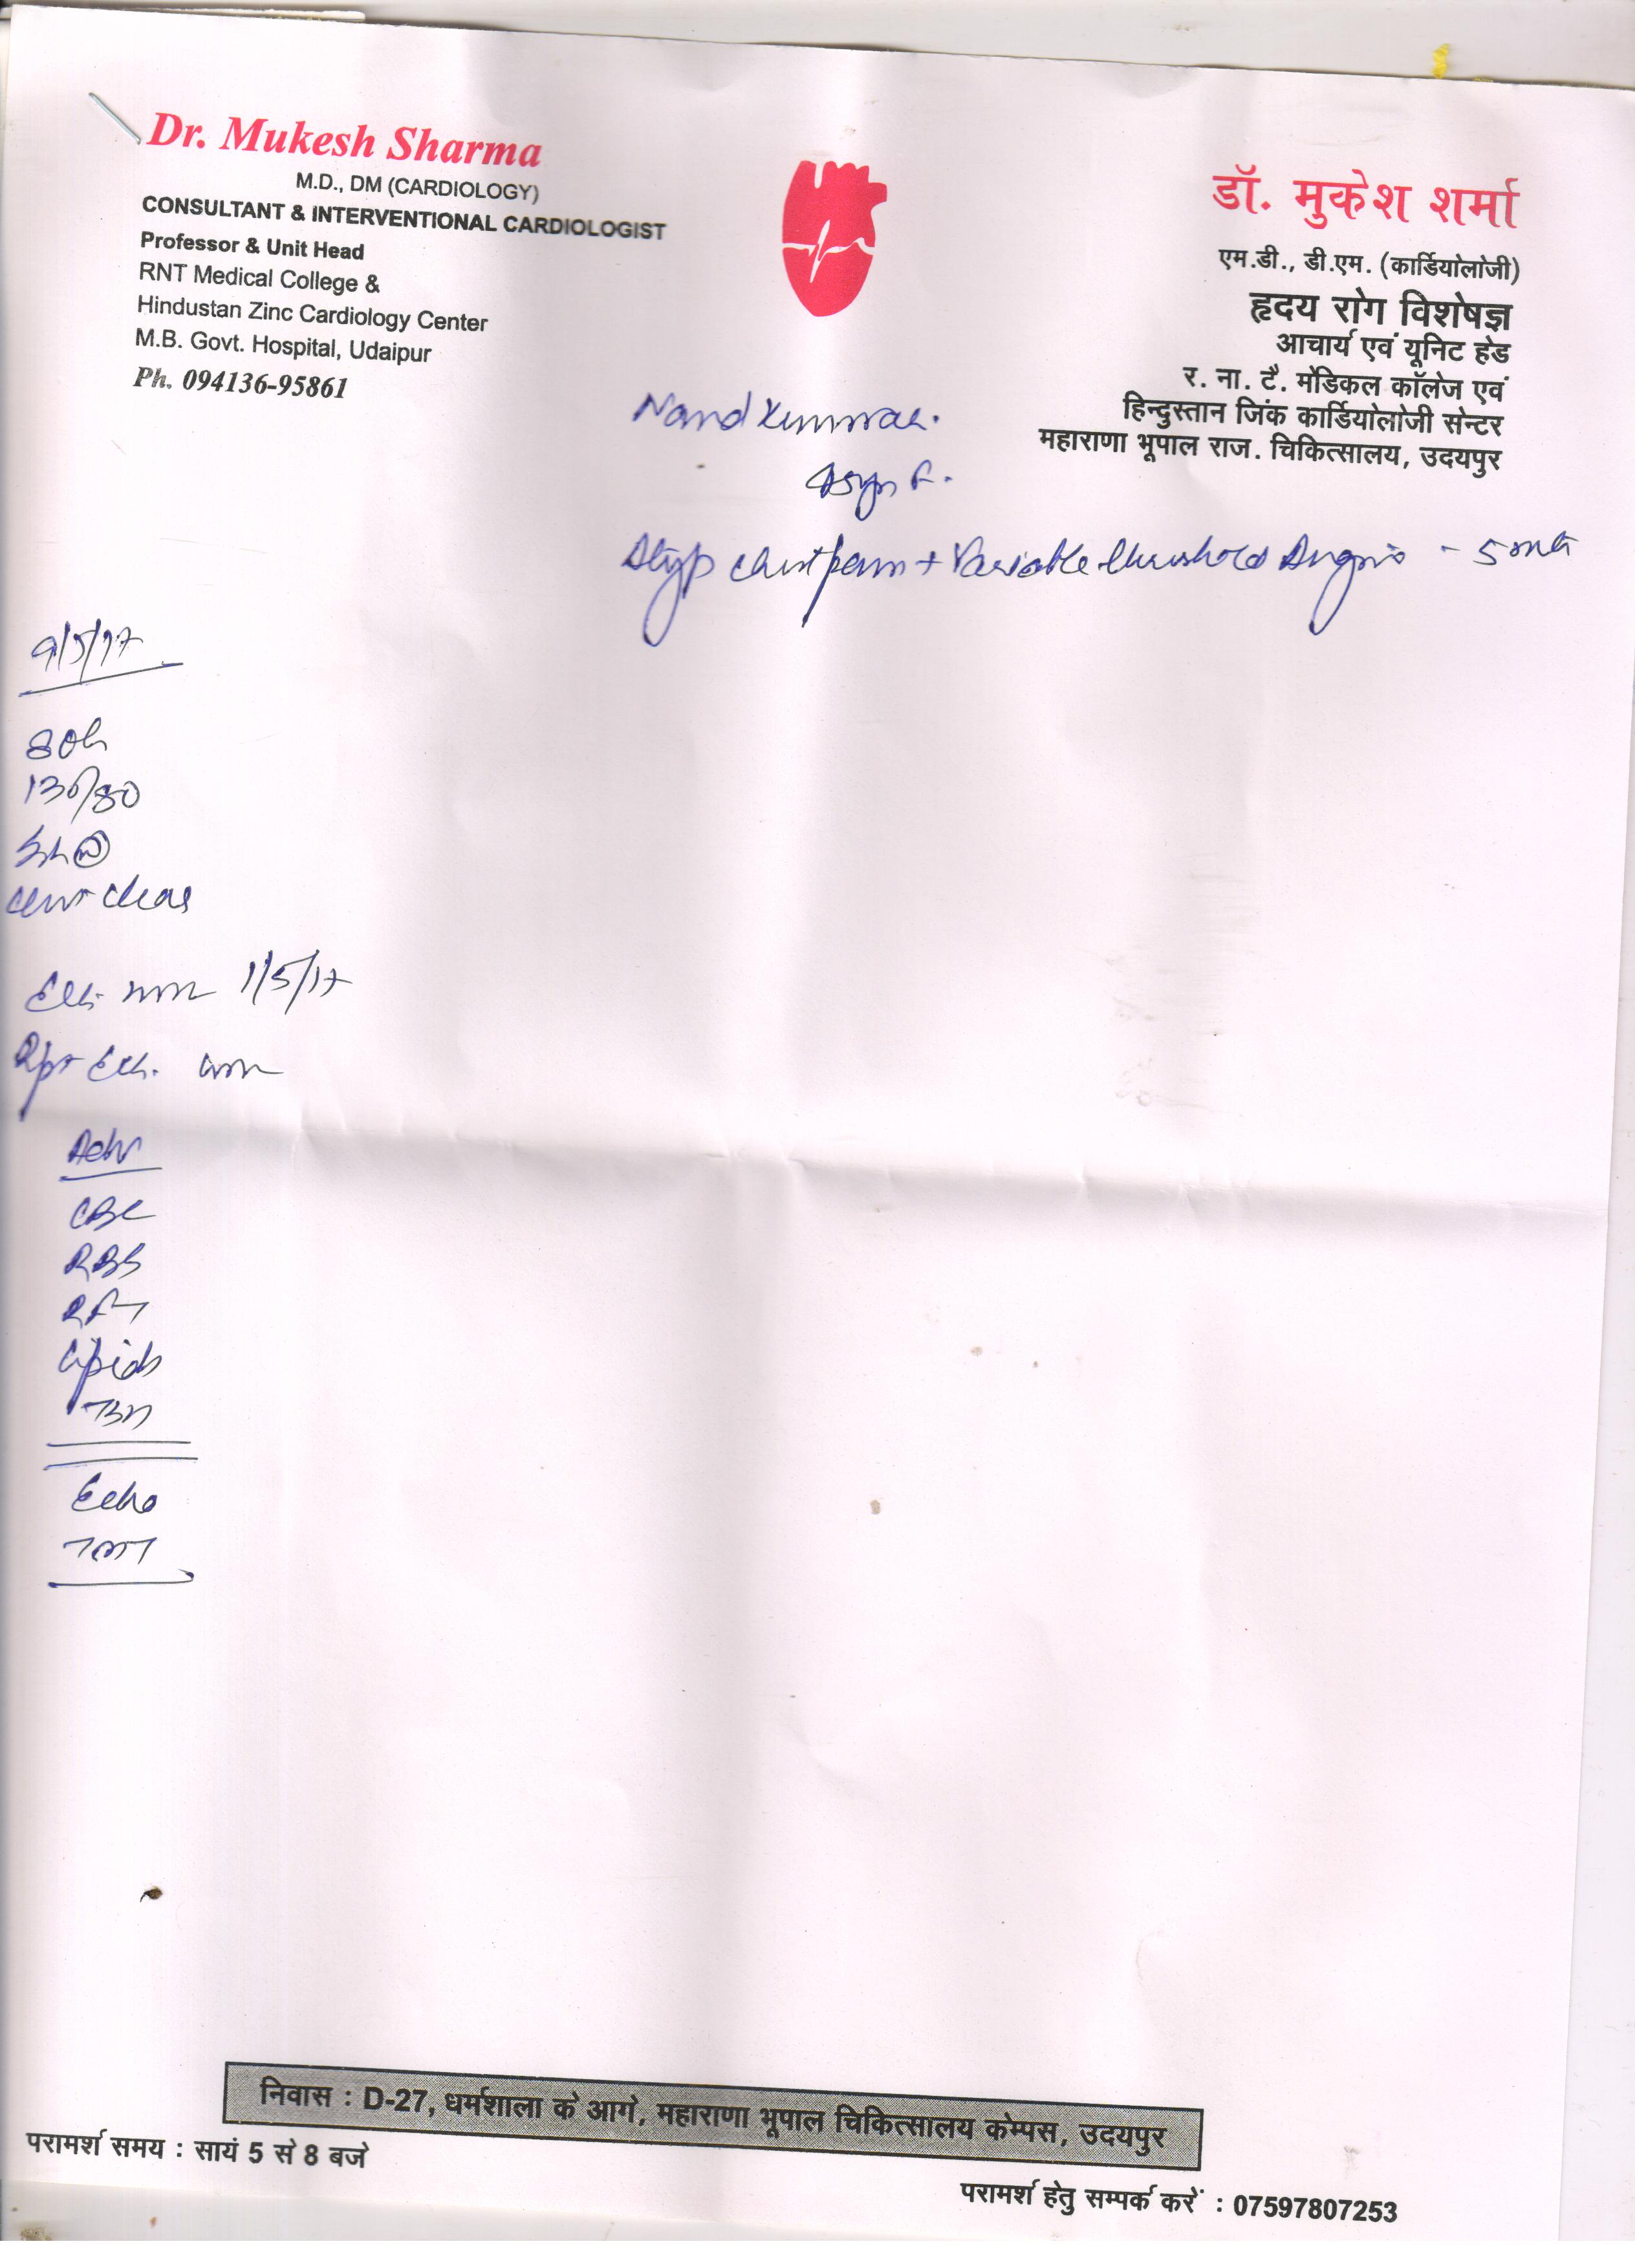 Dr. Mukesh Sharma
M.D., DM (CARDIOLOGY)
CONSULTANT & INTERVENTIONAL CARDIOLOGIST
Professor & Unit Head
RNT Medical College &
Hindustan Zinc Cardiology Center
M.B. Govt. Hospital, Udaipur
Ph. 094136-95861
डॉ. मुकेश शर्मा
एम.डी., डी.एम. (कार्डियोलोजी)
हृदय रोग विशेषज्ञ
आचार्य एवं यूनिट हेड
र. ना. टै. मेडिकल कॉलेज एवं
हिन्दुस्तान जिंक कार्डियोलोजी सेन्टर
महाराणा भूपाल राज. चिकित्सालय, उदयपुर
Nand
chest pain + Variable threshold Angina - 5
9/5/17
130/80
chest clear
1/5/17
Adv
CBC
RBS
RFT
Lipids
Echo
TMT
निवास : D-27, धर्मशाला के आगे, महाराणा भूपाल चिकित्सालय केम्पस, उदयपुर
परामर्श समय : सायं 5 से 8 बजे
परामर्श हेतु सम्पर्क करें : 07597807253